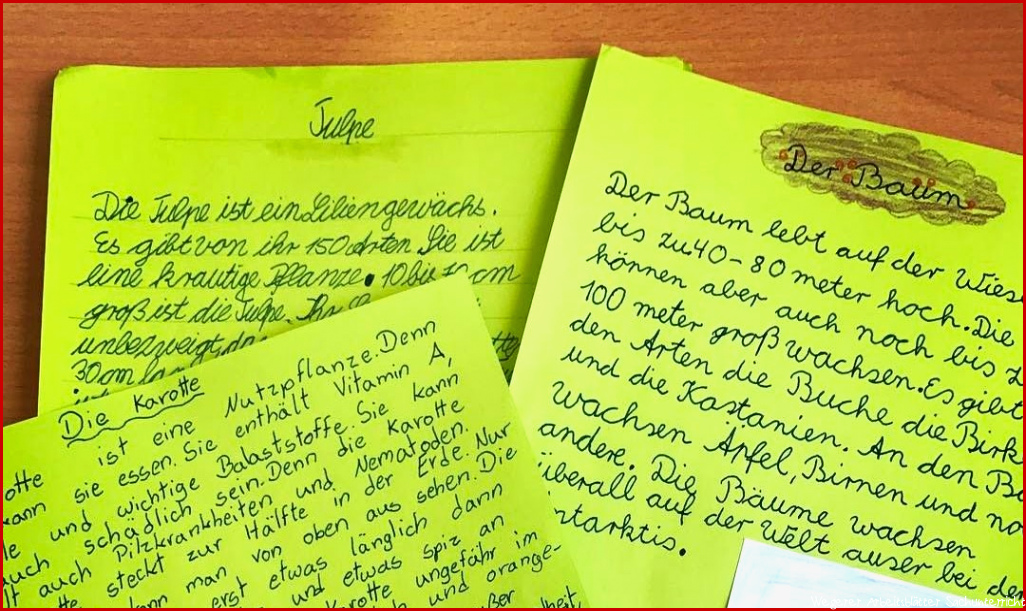 Tulpe
Die Tulpe ist ein Liliengewächs.
Es gibt von ihr 150 Arten. Sie ist
eine krautige Pflanze. 10 bis cm
groß ist die Tulpe. Ihr
unbezweigt,
30 cm
Die Karotte
ist eine Nutzpflanze. Denn
sie essen. Sie enthält Vitamin A,
und wichtige Balaststoffe. Sie kann
auch schädlich sein. Denn die Karotte
auch Pilzkrankheiten und Nematoden.
steckt zur Hälfte in der Erde. Nur
man von oben aus sehen. Die
erst etwas länglich dann
und etwas spiz an
ungefähr im
und orange-
Der Baum
Der Baum lebt auf der Wiese
bis zu 40-80 meter hoch. Die
können aber auch noch bis
100 meter groß wachsen. Es gibt
den Arten die Buche die Birk
und die Kastanien. An den
wachsen Äpfel, Birnen und no
andere. Die Bäume wachsen
überall auf der Welt auser bei der
ntarktis.